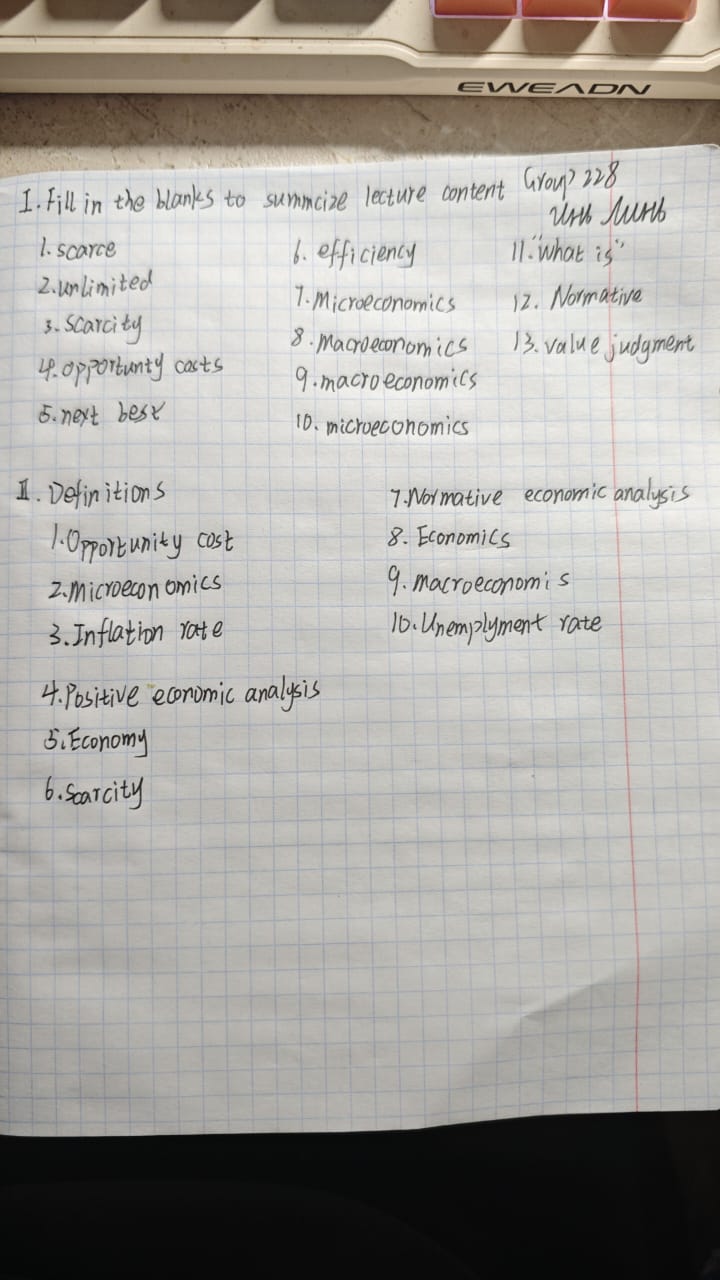 EWEADN
I. Fill in the blanks to summcize lecture content Group 228
Инь Линь
1. scarce
2. unlimited
3. Scarcity
4. opportunty costs
5. next best
6. efficiency
7. Microeconomics
8. Macroeconomics
9. macroeconomics
10. microeconomics
11. "What is"
12. Normative
13. value judgment
II. Definitions
1. Opportunity cost
2. Microeconomics
3. Inflation rate
4. Positive economic analysis
5. Economy
6. Scarcity
7. Normative economic analysis
8. Economics
9. macroeconomis
10. Unemplyment rate